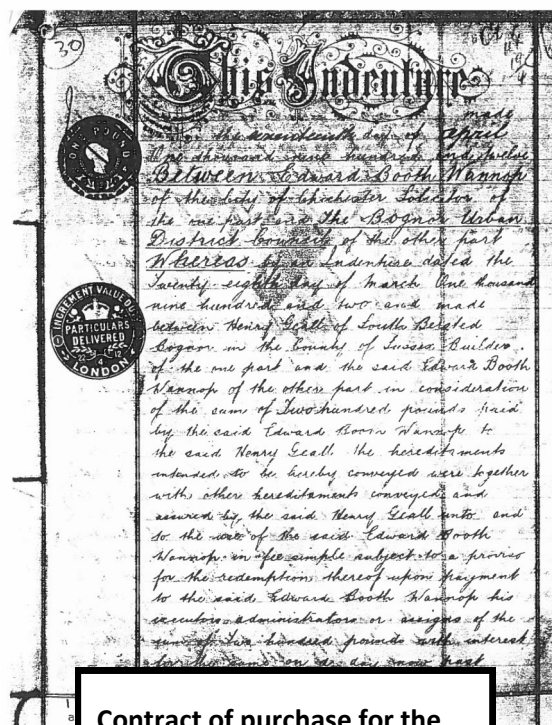 30
This Indenture
made
the seventeenth day of April
One thousand nine hundred and twelve
Between Edward Booth Wannop
of the City of Chichester Solicitor of
the one part and The Bognor Urban
District Council of the other part
Whereas by an Indenture dated the
Twenty eighth day of March One thousand
nine hundred and two and made
between Henry Geall of South Bersted
Bognor in the County of Sussex Builder
of the one part and the said Edward Booth
Wannop of the other part in consideration
of the sum of Two hundred pounds paid
by the said Edward Booth Wannop to
the said Henry Geall the hereditaments
intended to be hereby conveyed were together
with other hereditaments conveyed and
assured by the said Henry Geall unto and
to the use of the said Edward Booth
Wannop in fee simple subject to a proviso
for the redemption thereof upon payment
to the said Edward Booth Wannop his
executors administrators or assigns of the
sum of two hundred pounds with interest
for the same on a day now past
ONE POUND
INCREMENT VALUE DU
PARTICULARS
DELIVERED
4 12
LONDON
Contract of purchase for the